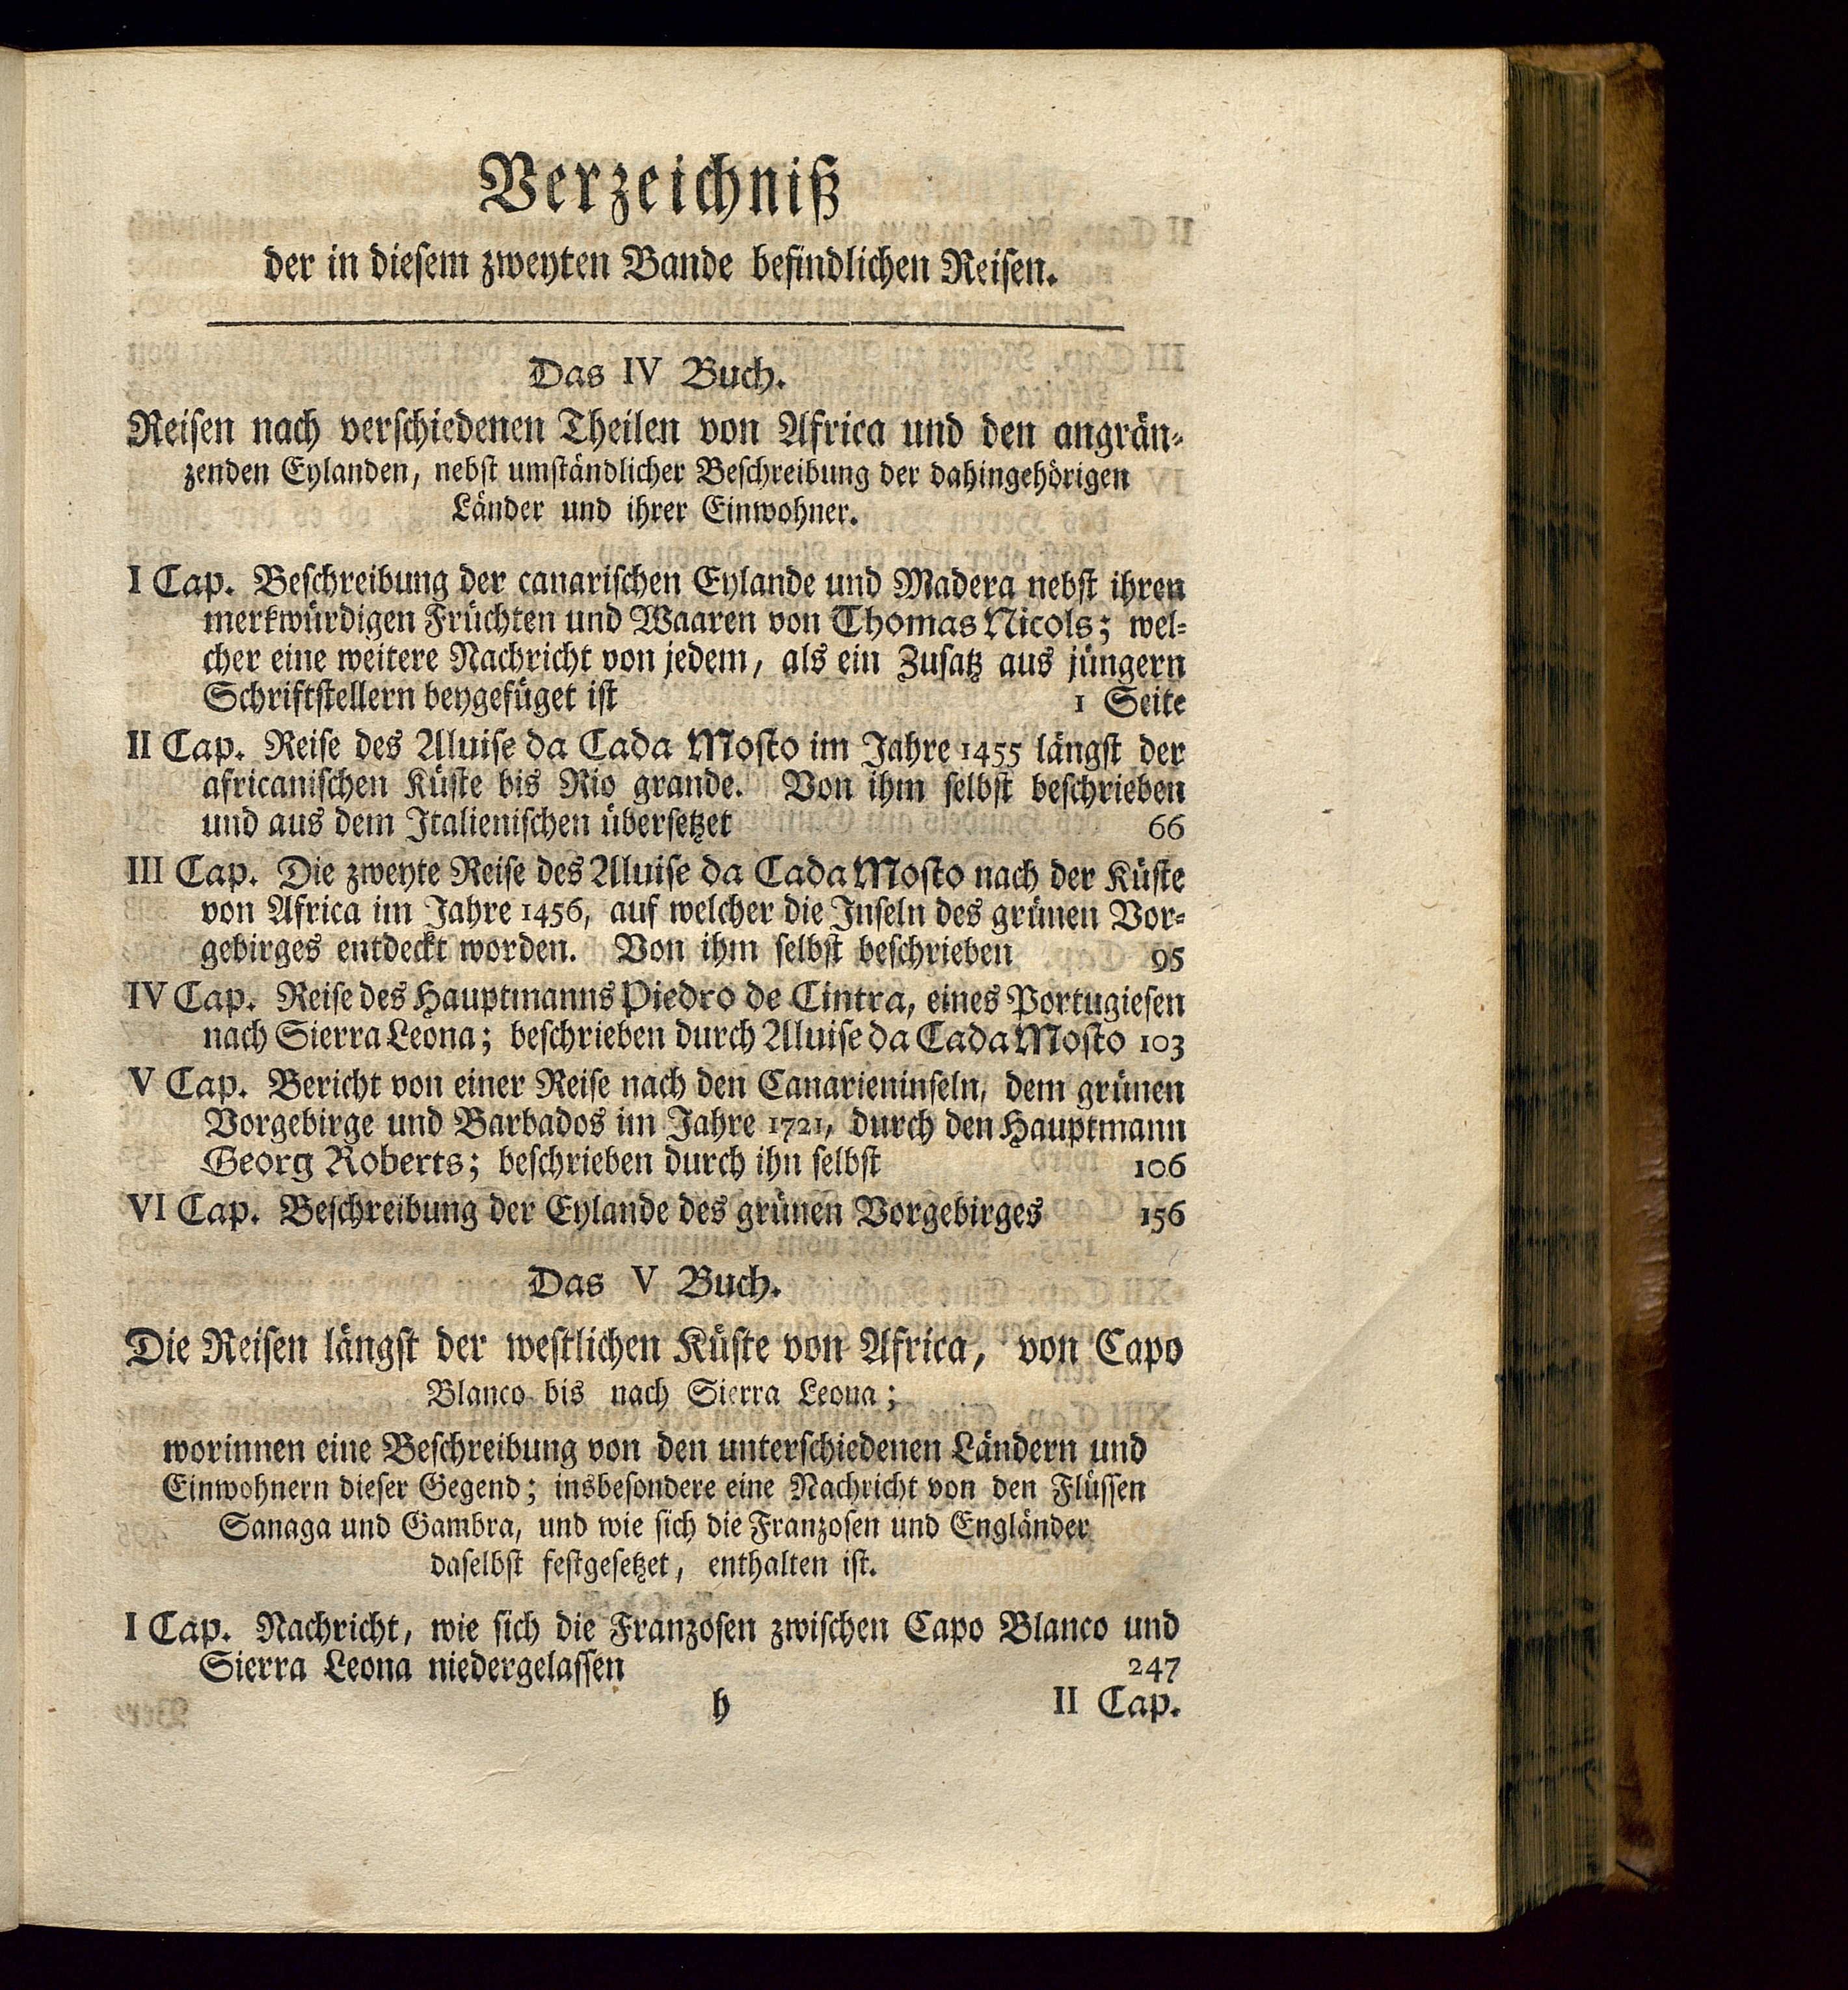 Verzeichniß
der in diesem zweyten Bande befindlichen Reisen.
Das IV Buch.
Reisen nach verschiedenen Theilen von Africa und den angrän-
zenden Eylanden, nebst umständlicher Beschreibung der dahingehörigen
Länder und ihrer Einwohner.
I Cap. Beschreibung der canarischen Eylande und Madera nebst ihren
merkwürdigen Früchten und Waaren von Thomas Nicols; wel-
cher eine weitere Nachricht von jedem, als ein Zusatz aus jüngern
Schriftstellern beygefüget ist 1 Seite
II Cap. Reise des Aluise da Cada Mosto im Jahre 1455 längst der
africanischen Küste bis Rio grande. Von ihm selbst beschrieben
und aus dem Italienischen übersetzet 66
III Cap. Die zweyte Reise des Aluise da Cada Mosto nach der Küste
von Africa im Jahre 1456, auf welcher die Inseln des grünen Vor-
gebirges entdeckt worden. Von ihm selbst beschrieben 95
IV Cap. Reise des Hauptmanns Piedro de Cintra, eines Portugiesen
nach Sierra Leona; beschrieben durch Aluise da Cada Mosto 103
V Cap. Bericht von einer Reise nach den Canarieninseln, dem grünen
Vorgebirge und Barbados im Jahre 1721, durch den Hauptmann
Georg Roberts; beschrieben durch ihn selbst 106
VI Cap. Beschreibung der Eylande des grünen Vorgebirges 156
Das V Buch.
Die Reisen längst der westlichen Küste von Africa, von Capo
Blanco bis nach Sierra Leona;
worinnen eine Beschreibung von den unterschiedenen Ländern und
Einwohnern dieser Gegend; insbesondere eine Nachricht von den Flüssen
Sanaga und Gambra, und wie sich die Franzosen und Engländer
daselbst festgesetzet, enthalten ist.
I Cap. Nachricht, wie sich die Franzosen zwischen Capo Blanco und
Sierra Leona niedergelassen 247
h II Cap.